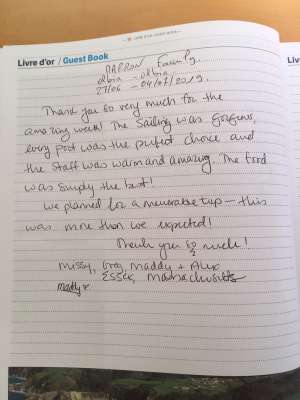 Livre d'or / Guest Book
Family
olbia - olbia
27/06 - 04/07/2019.
Thank you so very much for the
amazing week! The sailing was gorgeous,
every port was the perfect choice and
the staff was warm and amazing. The food
was simply the best!
We planned for a memorable trip — this
was more than we expected!
Thank you so much!
Missy, Greg, Maddy + Alex
Essex, Massachusetts
Maddy
Liv